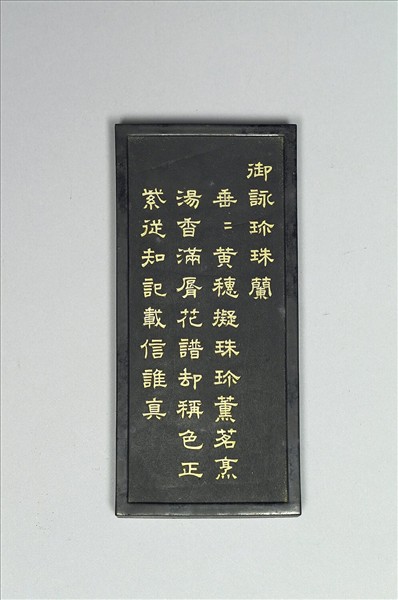 御詠珎珠蘭
垂〻黃穗擬珠珎薰茗烹
湯香滿脣花譜却稱色正
紫從知記載信誰真